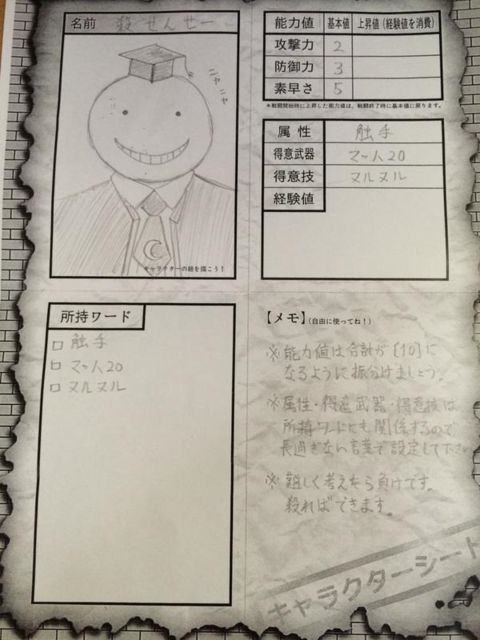 名前 殺せんせー
ニヤニヤ
キャラクターの絵を描こう！
能力値 基本値 上昇値（経験値を消費）
攻撃力 2
防御力 3
素早さ 5
※戦闘開始時に上昇した能力値は、戦闘終了時に基本値に戻ります。
属性 触手
得意武器 マッハ20
得意技 ヌルヌル
経験値
所持ワード
□ 触手
□ マッハ20
□ ヌルヌル
【メモ】（自由に使ってね！）
※能力値は合計が〔10〕に
なるように振分けましょう。
※属性・得意武器・得意技は
所持ワードにも関係するので
長過ぎない言葉で設定して下さい
※難しく考えたら負けです。
殺ればできます。
キャラクターシート